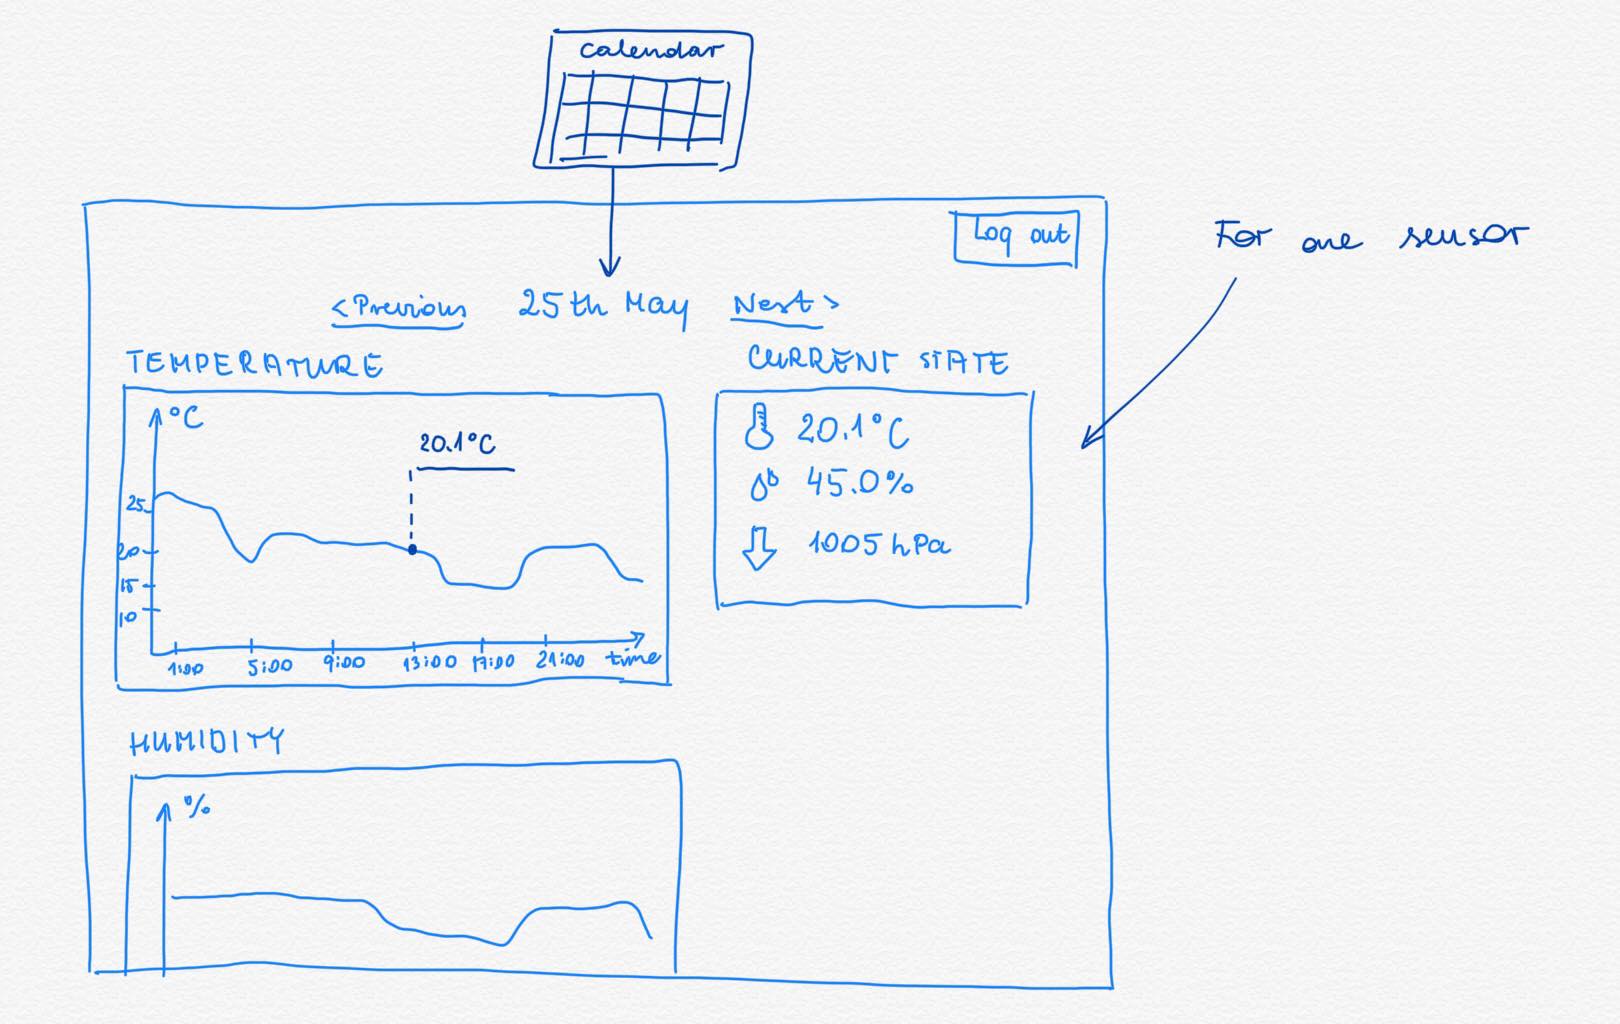 calendar
Log out
For one sensor
<Previous 25th May Next >
TEMPERATURE
CURRENT STATE
°C
20.1°C
25
20
15
10
1:00 5:00 9:00 13:00 17:00 21:00 time
20.1°C
45.0%
1005 hPa
HUMIDITY
%